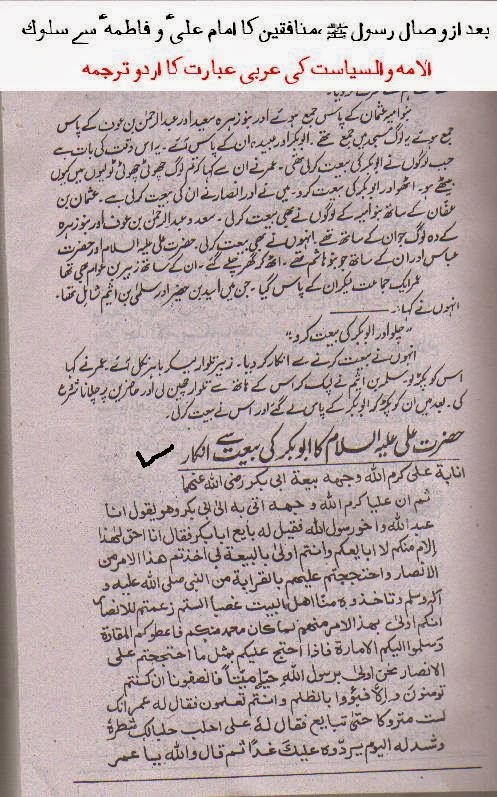 بعد ازوصال رسول ﷺ ،منافقین کا امام علیؑ و فاطمہؑ سے سلوک
الامہ والسیاست کی عربی عبارت کا اردو ترجمہ
بنو امیہ عثمان کے پاس جمع ہوئے اور بنو زہرہ سعد اور عبدالرحمٰن بن عوف کے پاس
جمع ہوئے یہ لوگ مسجد میں جمع تھے۔ ابوبکر اور عبیدہ ان کے پاس آئے۔ یہ اس وقت کی بات ہے
جب لوگوں نے ابوبکر کی بیعت کرلی تھی۔ عمر نے ان سے کہا کہ تم لوگ چھوٹی چھوٹی ٹولیوں میں کیوں
بیٹھے ہو۔ اٹھو اور ابوبکر کی بیعت کرو۔ میں نے اور انصار نے ان کی بیعت کرلی ہے۔ عثمان بن
عفان کے ساتھ بنو امیہ کے لوگوں نے بھی بیعت کرلی۔ سعد و عبدالرحمٰن بن عوف اور بنو زہرہ
کے وہ لوگ جو ان کے ساتھ تھے انہوں نے بھی بیعت کرلی۔ حضرت علی علیہ السلام اور حضرت
عباس اور ان کے ساتھ جو بنو ہاشم تھے۔ اٹھ کر گھر چلے گئے۔ ان کے ساتھ زبیر بن عوام بھی تھا
عمر ایک جماعت لیکر ان کے پاس گیا۔ جن میں اسید بن حضیر اور سلمہ بن اشیم شامل تھا۔
انہوں نے کہا:۔
"چلو اور ابوبکر کی بیعت کرو"
انہوں نے بیعت کرنے سے انکار کردیا۔ زبیر تلوار لیکر باہر نکل آئے۔ عمر نے کہا
اس کو پکڑ لو سلمہ بن اشیم نے لپک کر اس کے ہاتھ سے تلوار چھین لی اور
کی۔ بعد میں ان کو پکڑ کر ابوبکر کے پاس لے گئے اور اس نے بیعت کرلی۔
حضرت علی علیہ السلام کا ابوبکر کی بیعت سے انکار
اباية علی کرم اللہ وجہہ بیعة ابی بکر رضی اللہ عنہما
ثم ان علیا کرم اللہ وجہہ اتی بہ الی ابی بکر وھو یقول انا
عبد اللہ واخو رسول اللہ فقیل لہ بایع ابا بکر فقال انا احق بھذا
الامر منکم لا ابایعکم وانتم اولیٰ بالبیعة لی اخذتم ھذا الامر من
الانصار واحتججتم علیھم بالقرابة من النبی صلی اللہ علیہ و
آلہ وسلم وتاخذوہ منا اھل البیت غصبا الستم زعمتم للانصار
انکم اولیٰ بھذا الامر منھم لما کان محمد منکم فاعطوکم المقادة
وسلموا الیکم الامارة فاذا احتج علیکم بمثل ما احتججتم علی
الانصار نحن اولیٰ برسول اللہ حیا ومیتاً فانصفونا ان کنتم
تومنون والا فبوؤا بالظلم وانتم تعلمون فقال لہ عمر انک
لست متروکا حتی تبایع فقال لہ علی احلب حلبا لک شطرہ
وشد لہ الیوم یردوہ علیک غدا ثم قال واللہ یا عمر